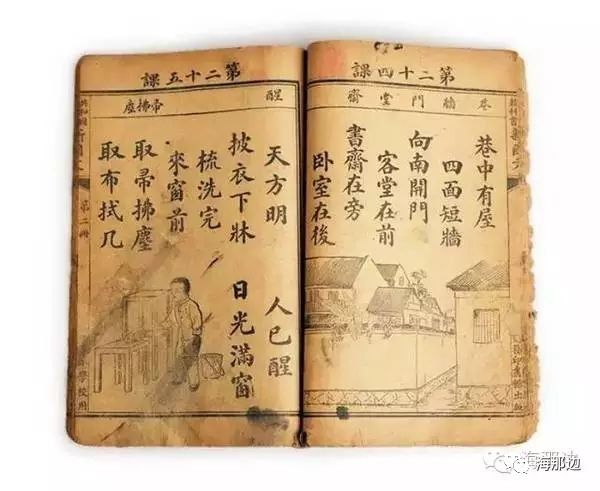 第二十四課
巷 牆 門 堂 齋
巷中有屋
四面短牆
向南開門
客堂在前
書齋在旁
卧室在後
第二十五課
醒 帚拂塵
天方明 人已醒
披衣下牀 日光滿窗
梳洗完
來窗前
取帚拂塵
取布拭几
第二冊
學校用
海那边
海那边